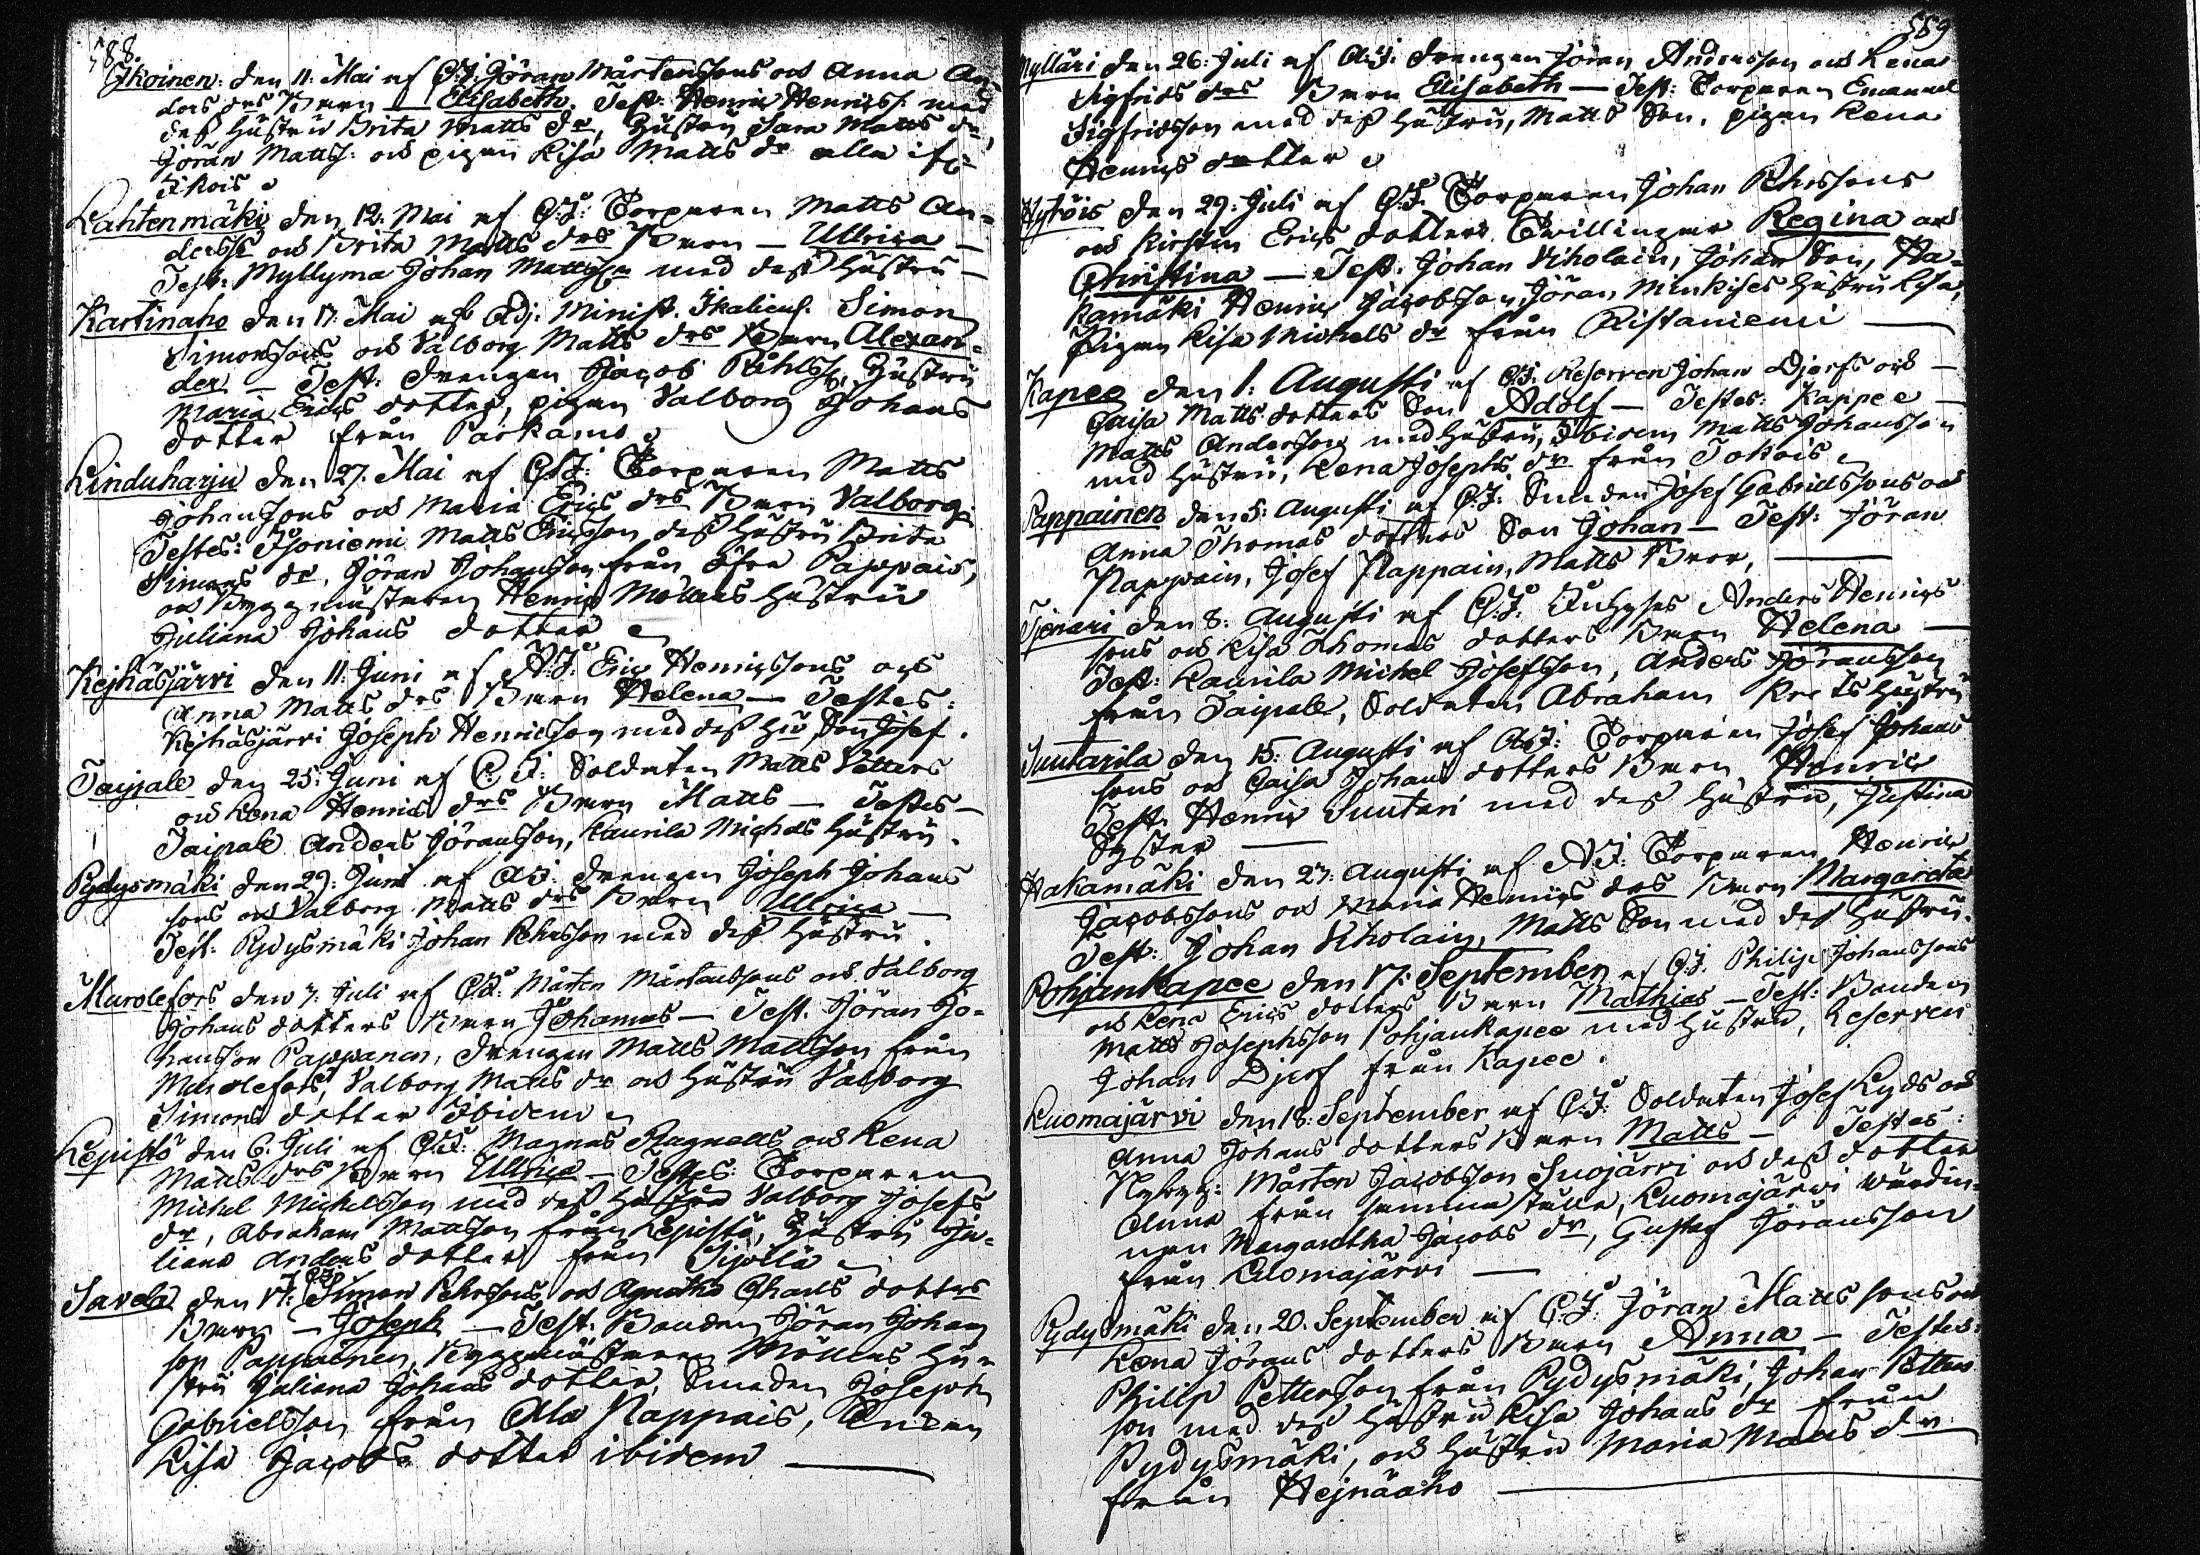 588
Ikoinen: den 11: Mai af C.J. Jöran Mårtenssons och Anna An=
ders drs Barn — Elisabeth. Test: Henric Henricss. med
dess Hustru Brita Matts dr, Hustru Sara Matts dr,
Jöran Mattss. och pigan Lisa Matts dr alla ifr.
Ikois
Lahtenmäki den 12. Mai af C.J: Torparen Matts An=
derss. och Brita Matts drs Barn — Ullrica —
Test: Myllyma Johan Mattss. med dess Hustru —
Kartinaho den 17: Mai af Adj. Minist. Ikaliens. Simon
Simonssons och Valborg Matts drs Barn Alexan=
der — Test: Drengen Jacob Hustru
Maria Erics dotter, pigan Valborg Johans
dotter från Parkano
Linduharju den 27. Mai af C.J: Torparen Matts
Johanssons och Maria Erics drs Barn Valborg
Testes: Isoniemi Matts Ericsson dess Hustru Brita
Simons dr, Jöran Johansson från öfre Pappais,
och Byggmästaren Henric Möllers Hustru
Juliana Johans dotter
Kejhäsjärvi den 11: Juni af A.J: Eric Henricssons och
Anna Matts drs Barn Helena — Testes:
Kejhäsjärvi Joseph Henricsson med dess Hu, Son Josef.
Taipale den 25: Juni af C.J: Soldaten Matts Vetters
och Lena Henrics drs Barn Matts — Testes —
Taipale Anders Jöransson, Kaurila Michels Hustru.
Pydysmäki den 29: Juni af A.J: Drengen Joseph Johans
sons och Valborg Matts drs Barn Ullrica —
Test: Pydysmäki Johan Pehrsson med dess Hustru.
Murolefors den 7: Juli af C.J: Mårten Mårtenssons och Valborg
Johans dotters Barn Johannes — Test. Jöran Jo=
hansson Pappanen, Drengen Matts Mattsson från
Murolefors, Valborg Matts dr och Hustru Valborg
Simons dotter Ibidem
Lepistö den 6. Juli af C.J: Magnus Ragnells och Lena
Matts drs Barn Ullrica — Testes: Torparen
Michel Michelsson med dess Hustru Valborg Josefs
dr, Abraham Mattsson från Lepistö, Hustru Ju=
liana Anders dotter från Sipola
Savela den 17: Simon Pehrssons och Agnetha Charls dotters
Barn — Joseph — Test: Bonden Jöran Johans
son Pappainen, Byggmästaren Möllers Hu=
stru Juliana Johans dotter Smeden Joseph
Gabrielsson från Ala Pappais, Enkan
Lisa Jacobs dotter ibidem
589
Mylläri den 26: Juli af A.J. Drengen Jöran Andersson och Lena
Sigfrids drs Barn Elisabeth — Test: Torparen Emanuel
Sigfridsson med dess Hustru, Matts Son, pigan Lena
Henrics dotter
den 29: Juli af C.J. Torparen Johan Pehrssons
och Kirstin Erics dotters Twillingar Regina och
Christina — Test. Johan Viholain, Johan Son, Ha=
kamäki Henric Jacobsson, Jöran Minkises Hustru Lisa,
Pigan Lisa Michels dr från Ristaniemi
Kapee den 1: Augusti af C.J. Reserven Johan Djerfs och —
Caisa Matts dotters Son Adolf — Testes: Kappee
Matts Andersson med Hustru, Ibidem Matts Johansson
med Hustru, Lena Josephs dr från Tokois
Pappainen den 5: Augusti af C.J: Smeden Josef Gabrielssons och
Anna Thomas dotters Son Johan — Test: Jöran
Pappain, Josef Pappain, Matts Bror,
den 8: Augusti af C.J: Inhyses Anders Henrics
sons och Lisa Thomas dotters Barn Helena —
Test: Kaurila Michel Josefsson, Anders Jöransson
från Taipale, Soldaten Abraham Hustru
Suutarila den 15: Augusti af A.J: Torparen Josef Johans
sons och Caisa Johans dotters Barn Henric
Test. Henric Suutari med dess Hustru, Justina
Syster
Hakamäki den 27: Augusti af A.J: Torparen Henric
Jacobssons och Maria Henrics drs Barn Margareta
Test: Johan Viholain, Matts Son med dess Hustru.
Pohjankapee den 17: September af C.J. Philip Johanssons
och Lena Erics dotters Barn Mathias — Test: Bonden
Matts Josephsson Pohjankapee med Hustru, Reserven
Johan Djerf från Kapee.
Luomajärvi den 18: September af C.J: Soldaten Josef Lyds och
Anna Johans dotters Barn Matts — Testes:
Nybygg: Mårten Jacobsson Suojärvi och dess dotter
Anna från samma ställe, Luomajärvi wärdin=
nan Margaretha Jacobs dr, Gustaf Jöransson
från Luomajärvi
Pydysmäki den 20. September af C.J: Jöran Matts sons och
Lena Jörans dotters Barn Anna — Testes:
Philip Pettersson från Pydysmäki, Johan Petters
son med dess Hustru Lisa Johans dr från
Pydysmäki, och Hustru Maria Matts dr
från Hejnäaho